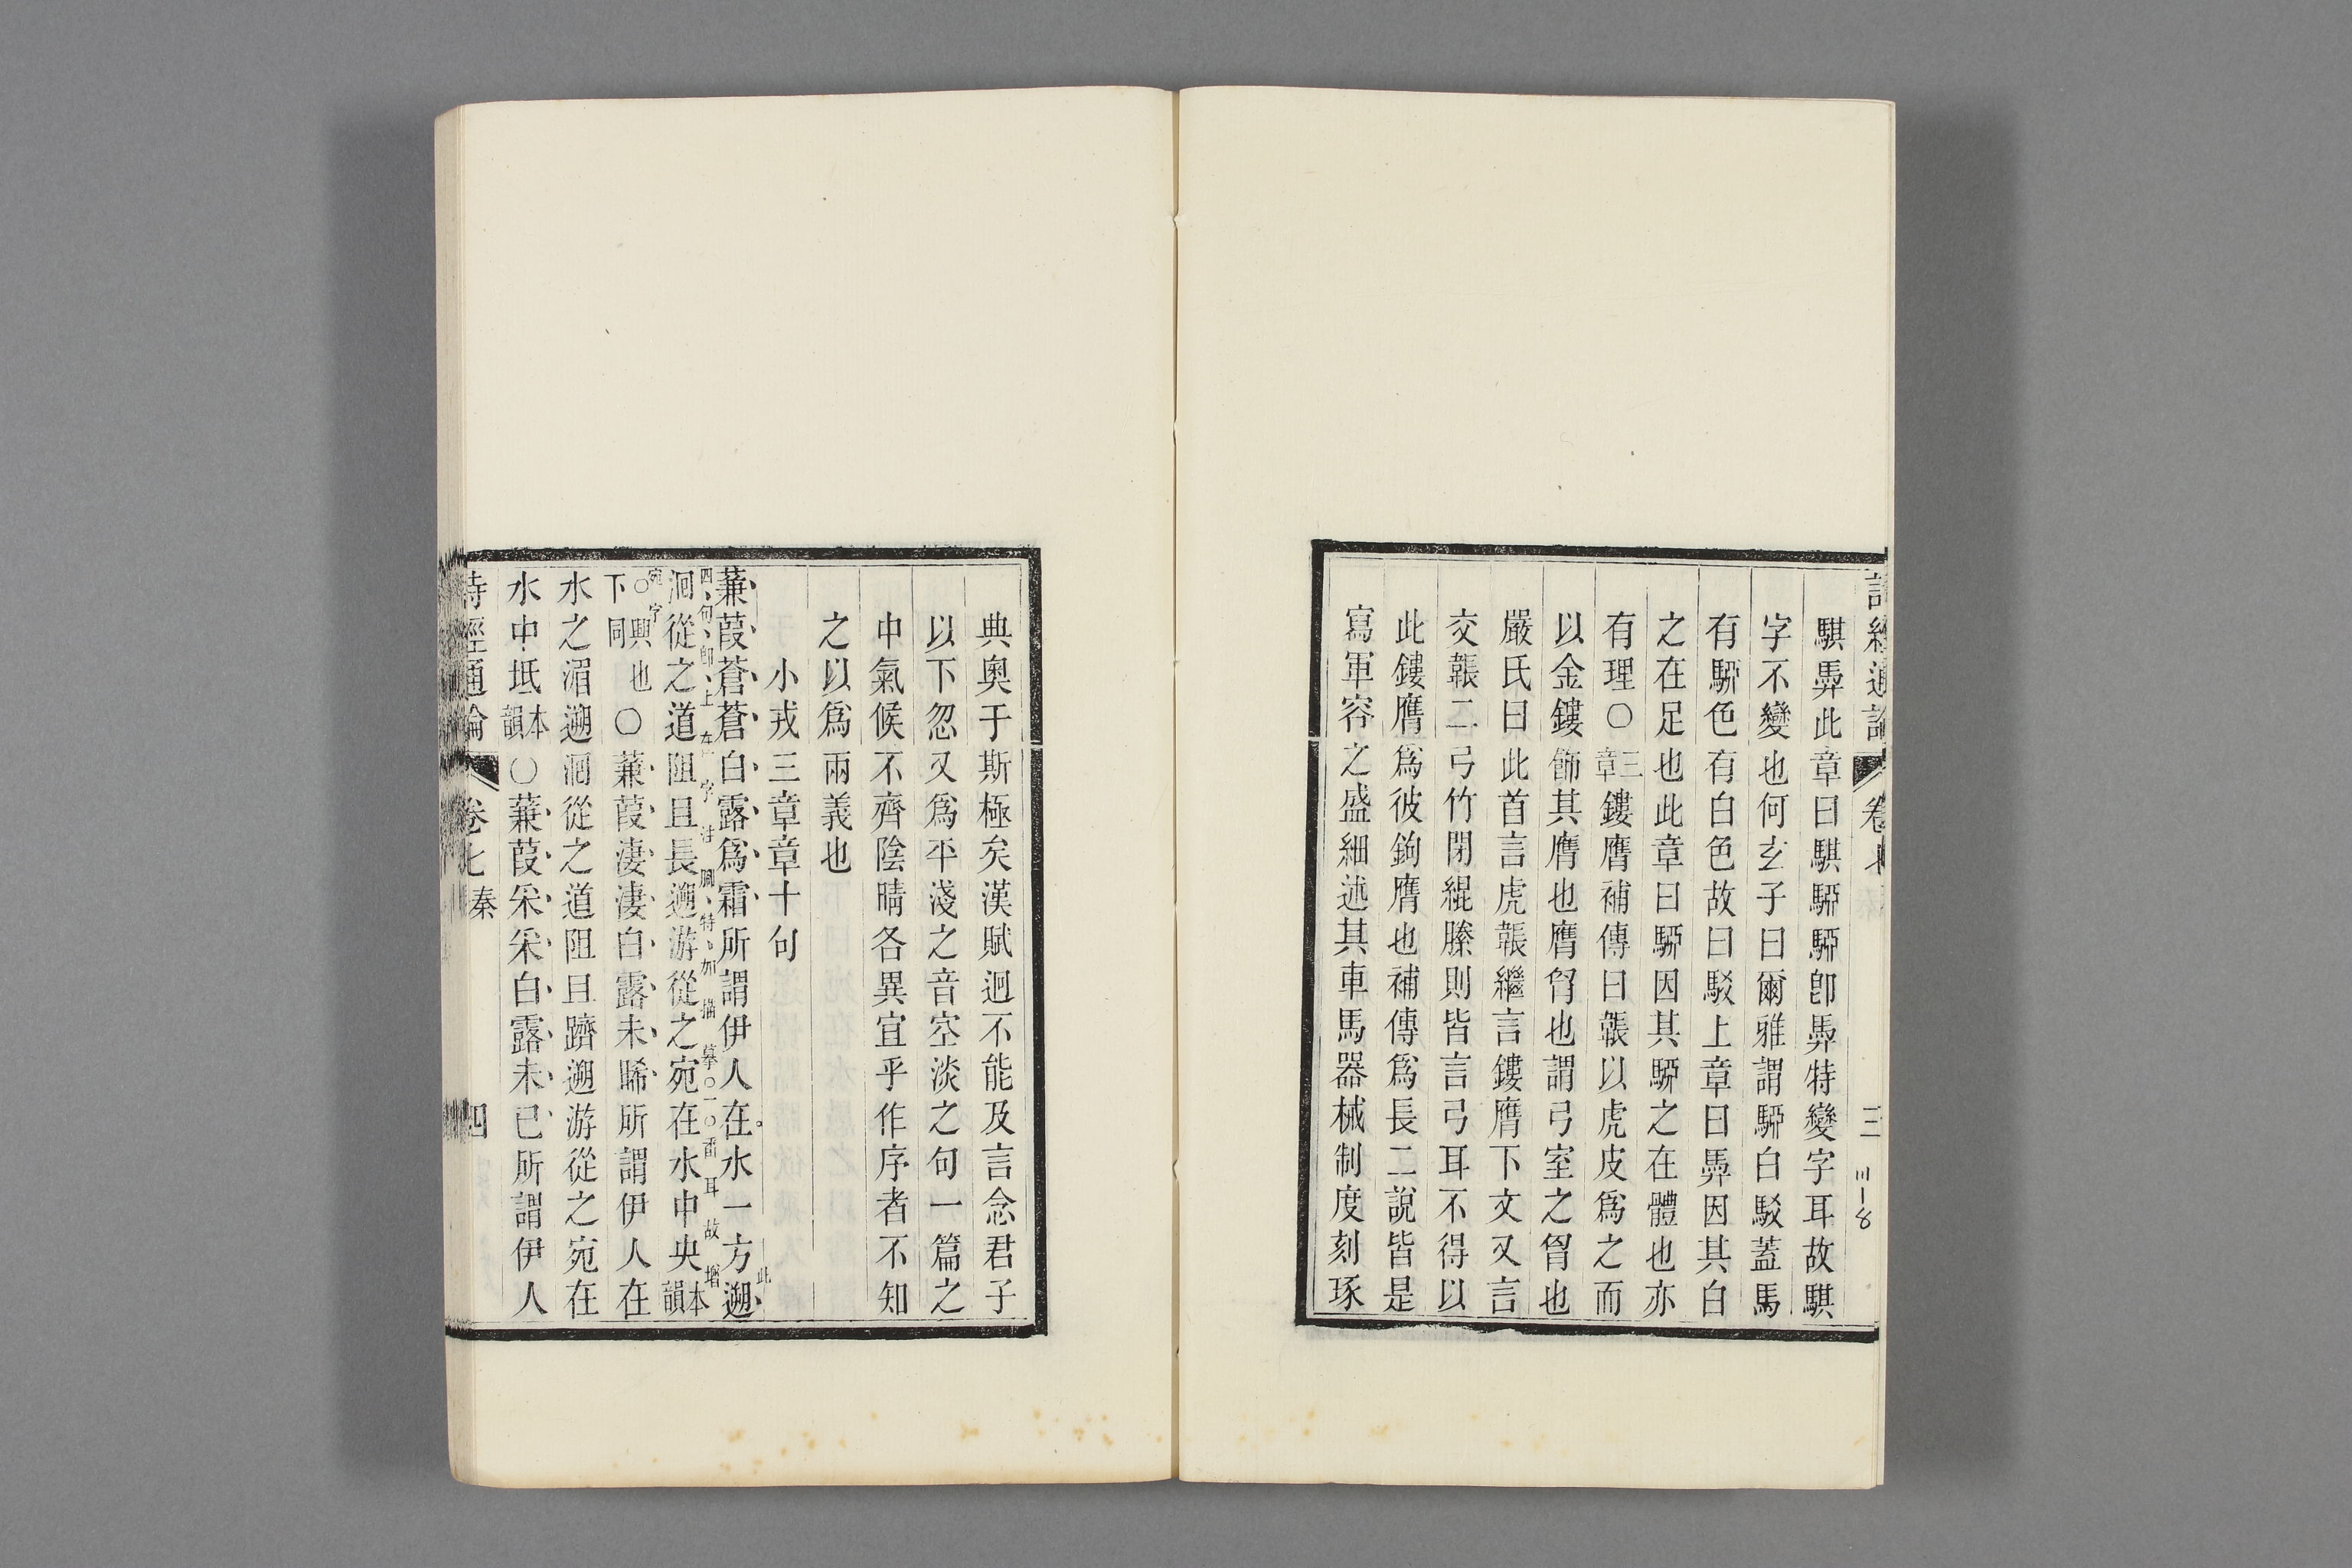 詩經通論 卷七 三
騏馵此章曰騏騧騧卽馵特變字耳故騏
字不變也何玄子曰爾雅謂騧白駁蓋馬
有騧色有白色故曰駁上章曰馵因其白
之在足也此章曰騧因其騧之在體也亦
有理○三章鏤膺補傳曰韔以虎皮爲之而
以金鏤飾其膺也膺胷也謂弓室之胷也
嚴氏曰此首言虎韔繼言鏤膺下文又言
交韔二弓竹閉緄縢則皆言弓耳不得以
此鏤膺爲彼鉤膺也補傳爲長二說皆是
寫軍容之盛細述其車馬器械制度刻琢
典奧于斯極矣漢賦迥不能及言念君子
以下忽又爲平淺之音空淡之句一篇之
中氣候不齊陰晴各異宜乎作序者不知
之以爲兩義也
小戎三章章十句
蒹葭蒼蒼白露爲霜所謂伊人在水一方遡
此四句卽上在字注腳特加描摹○一番耳故增
洄從之道阻且長遡游從之宛在水中央本韻
宛字○興也下同○蒹葭淒淒白露未晞所謂伊人在
水之湄遡洄從之道阻且躋遡游從之宛在
水中坻本韻○蒹葭采采白露未已所謂伊人
詩經通論 卷七 秦 四